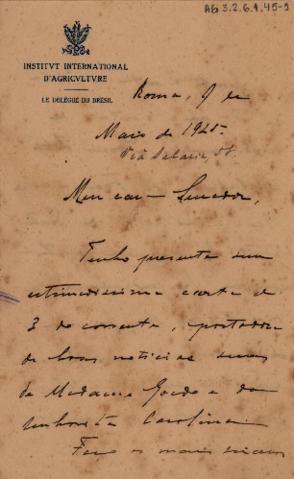 AG 3.2.6.1.45-2
INSTITVT INTERNATIONAL
D'AGRICVLTVRE
LE DÉLÉGUÉ DU BRÉSIL
Roma, 9 de
Maio de 1925.
Via Salaria,
Meu caro Senador,
Tenho presente sua
estimadissima carta de
3 do corrente, portadora
de boas noticias suas
de Madame e da
senhorita Carolina.
Faço os mais